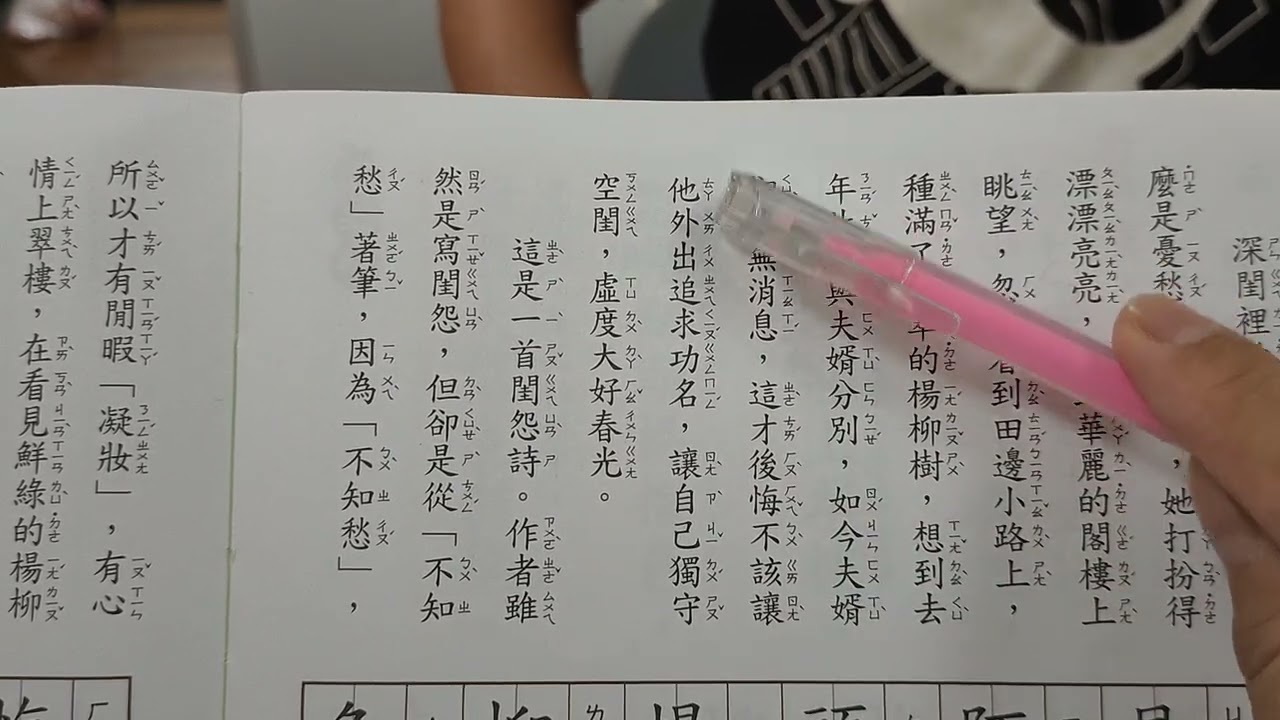 深閨裡
麼是憂愁，她打扮得
漂漂亮亮，華麗的閣樓上
眺望，忽看到田邊小路上，
種滿了翠的楊柳樹，想到去
年與夫婿分別，如今夫婿
無消息，這才後悔不該讓
他外出追求功名，讓自己獨守
空閨，虛度大好春光。
這是一首閨怨詩。作者雖
然是寫閨怨，但卻是從「不知
愁」著筆，因為「不知愁」，
所以才有閒暇「凝妝」，有心
情上翠樓，在看見鮮綠的楊柳